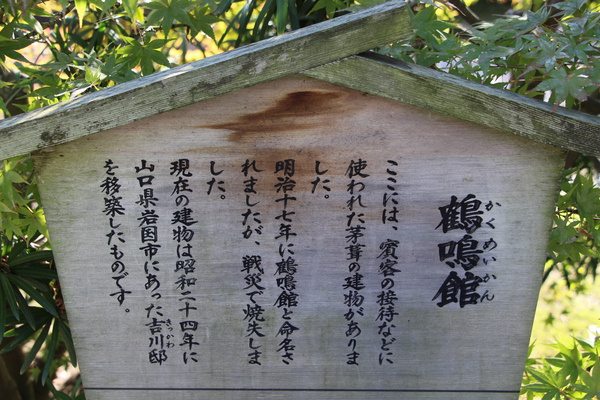 鶴鳴館
かくめいかん
ここには、賓客の接待などに
使われた茅葺の建物がありま
した。
明治十七年に鶴鳴館と命名さ
れましたが、戦災で焼失しま
した。
現在の建物は昭和二十四年に
山口県岩国市にあった吉川邸
きっかわ
を移築したものです。